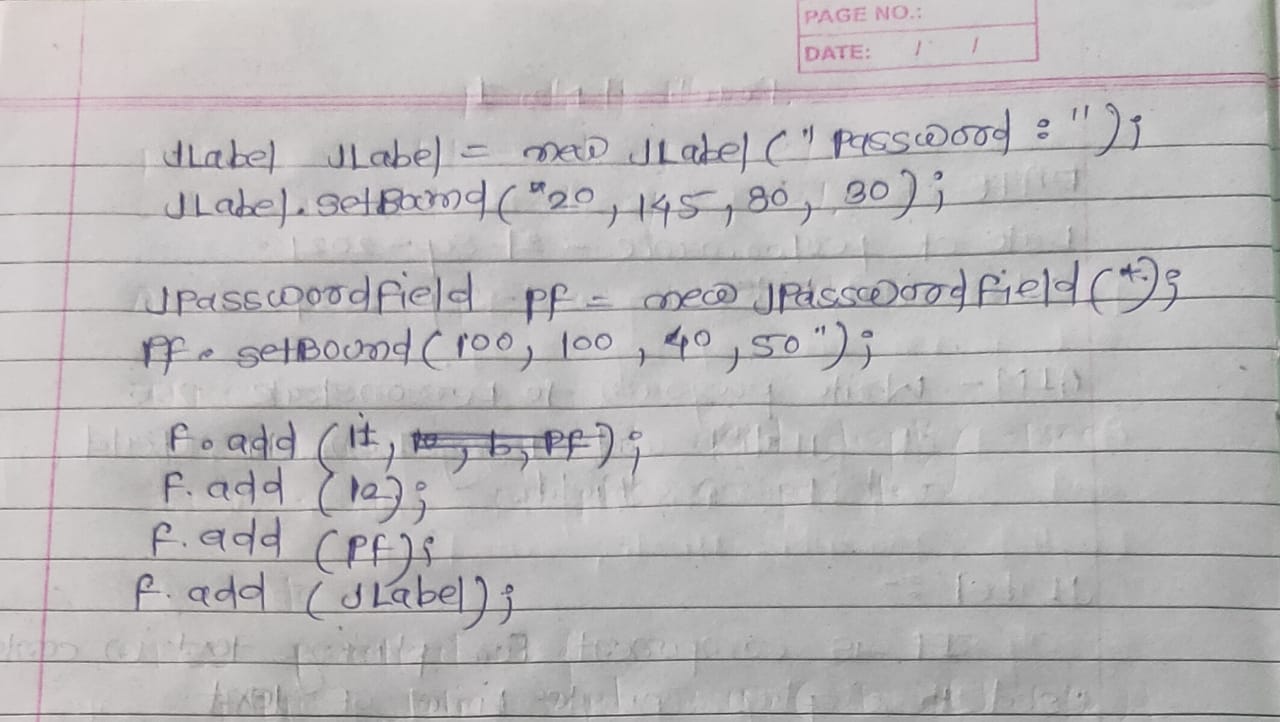 PAGE NO.:
DATE: / /
JLabel JLabel = new JLabel (" Password : ");
JLabel. setBound ("20, 145, 80, 30);
JPasswordfield pf = new JPasswordfield (*);
pf. setBound (100, 100, 40, 50");
f. add (1t, b, PF);
f. add (1e);
f. add (PF);
f. add (JLabel);